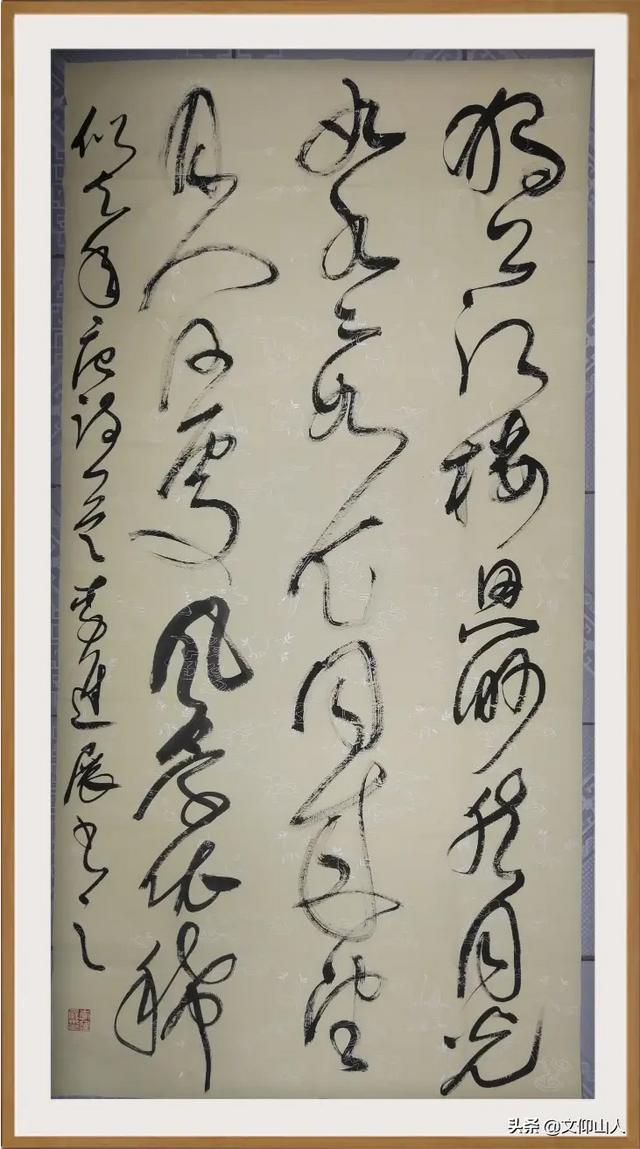 独上江楼思渺然月光
如水水如天同来望
月人何处风景依稀
似去年唐诗一首李进展书之
头条 @文仰山人